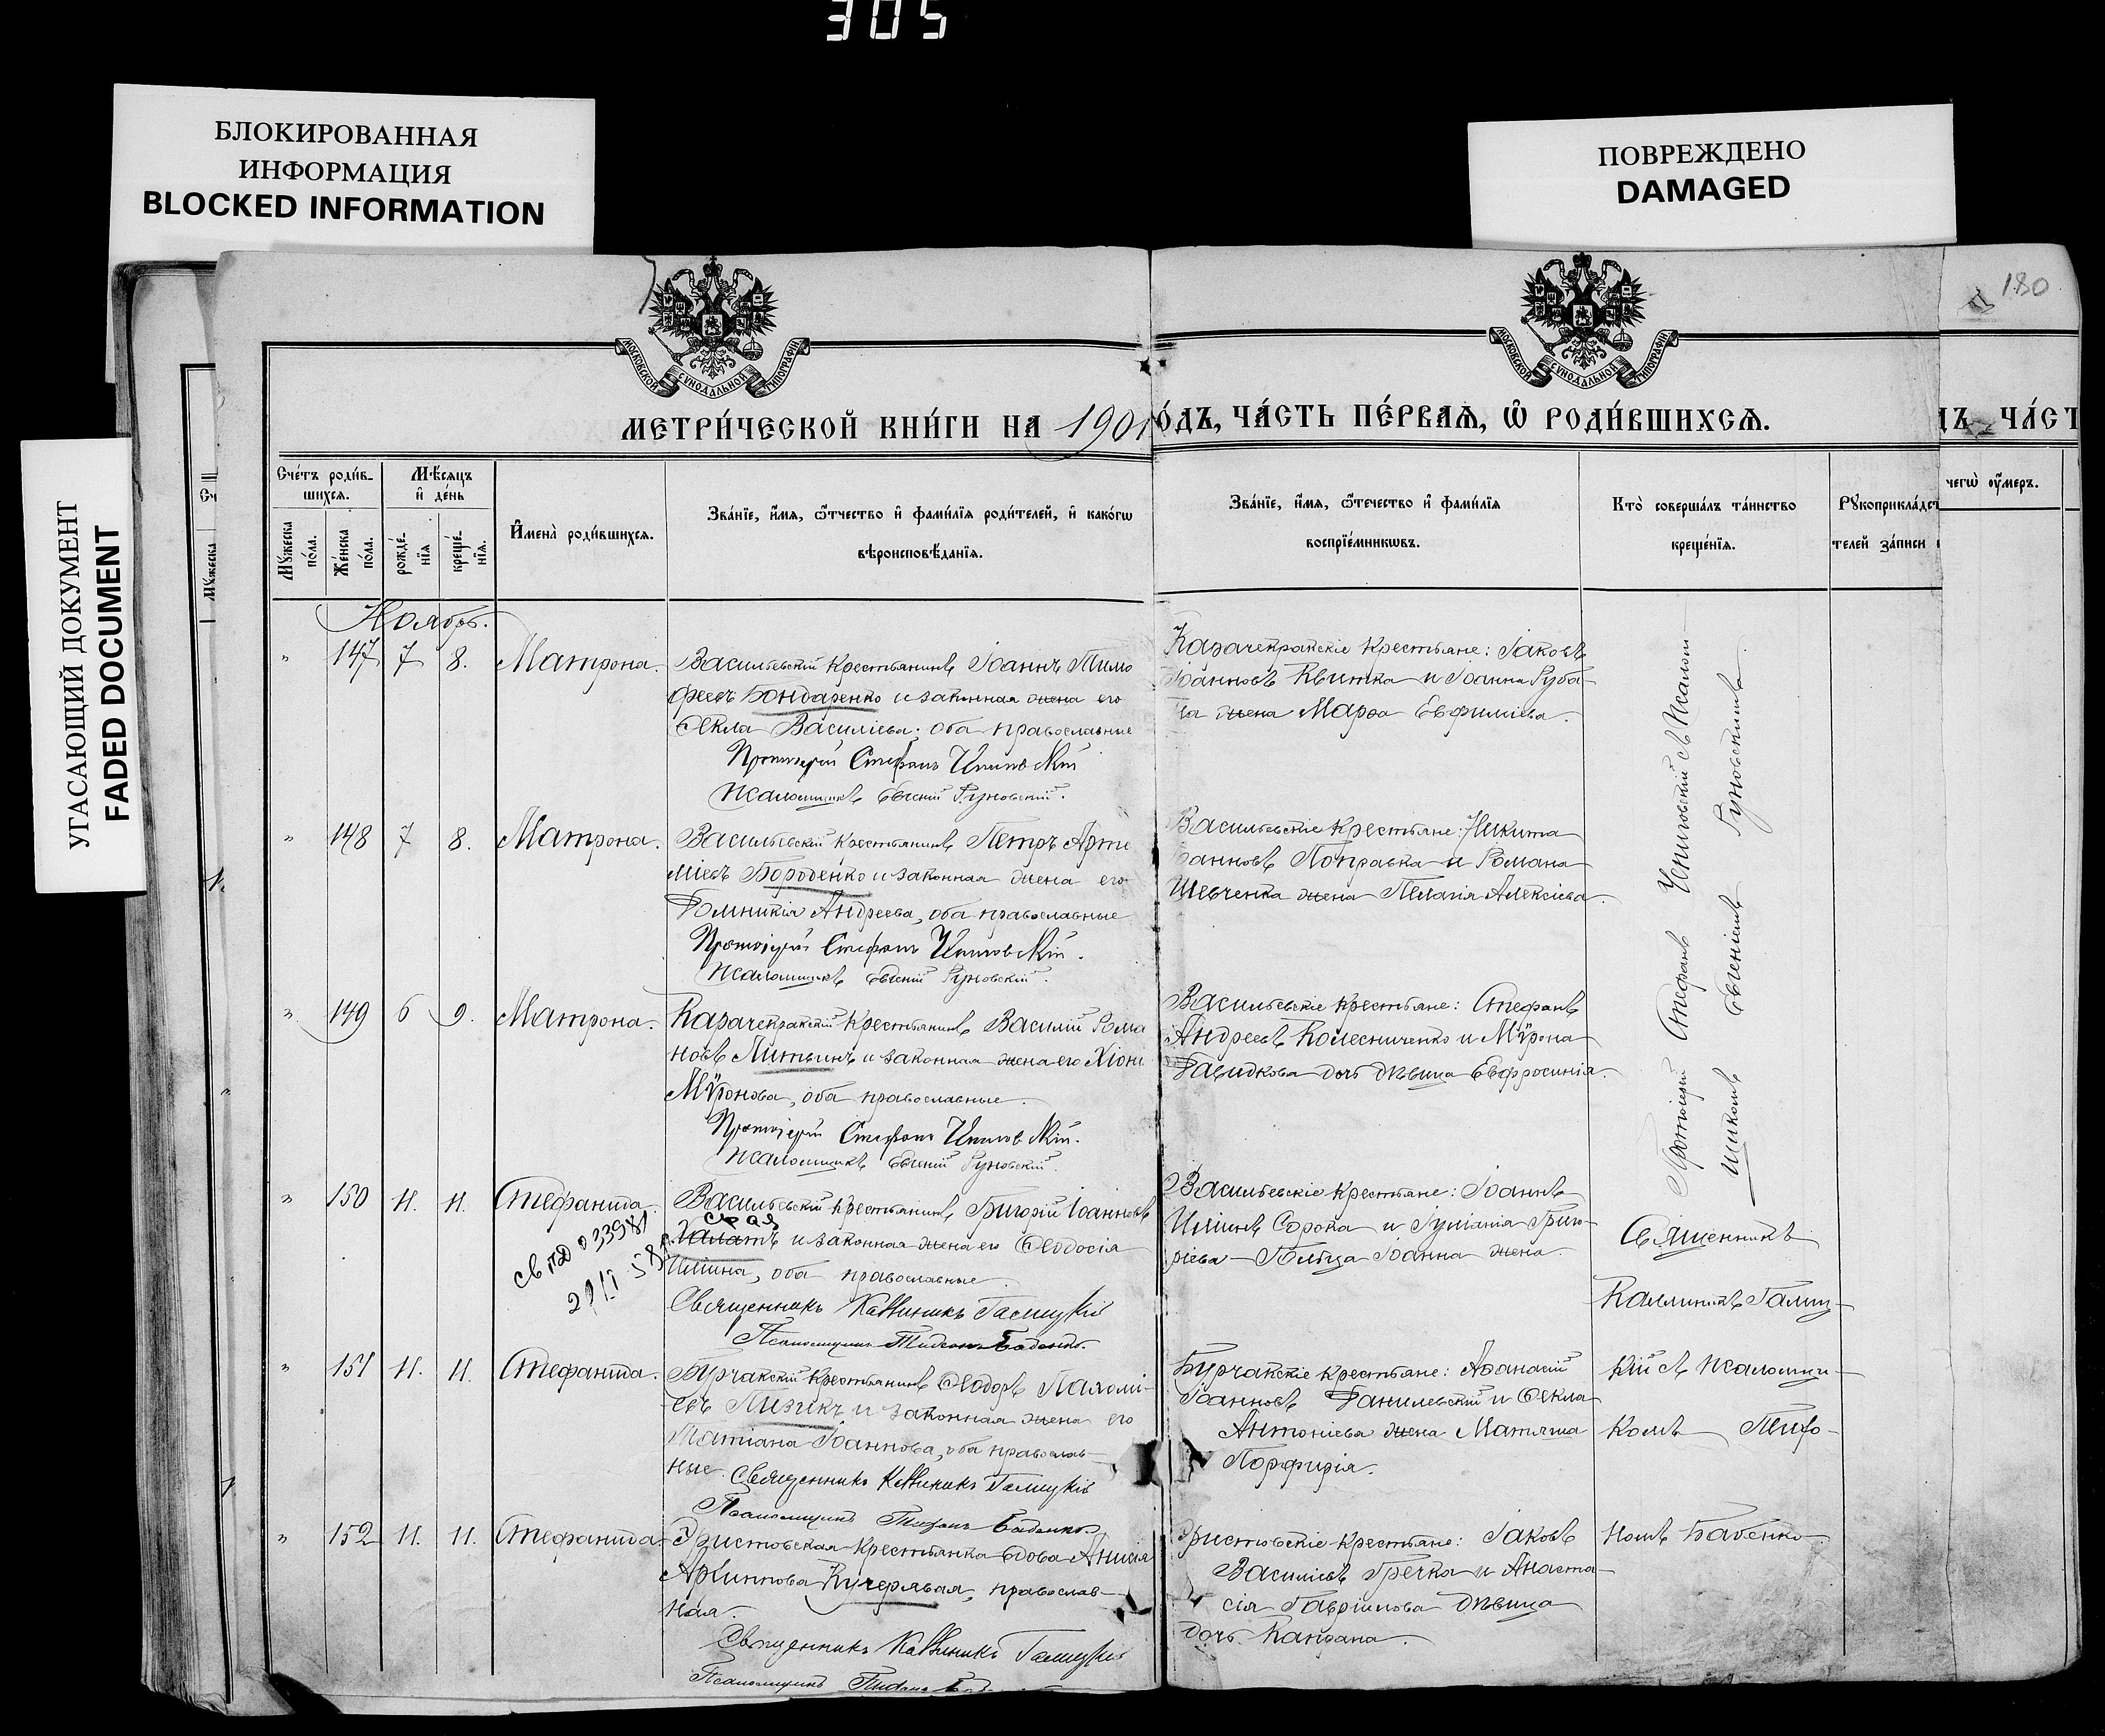 305
БЛОКИРОВАННАЯ
ИНФОРМАЦИЯ
BLOCKED INFORMATION
ПОВРЕЖДЕНО
DAMAGED
УГАСАЮЩИЙ ДОКУМЕНТ
FADED DOCUMENT
180
МОСКОВСКОЙ СѴНОДАЛЬНОЙ ТИПОГРАФІИ
МОСКОВСКОЙ СѴНОДАЛЬНОЙ ТИПОГРАФІИ
МЕТРИ́ЧЕСКОЙ КНИ́ГИ НА 1901
О́ДЪ, ЧА́СТЬ ПЕ́РВАѦ, Ѿ РОДИ́ВШИХСѦ.
Сче́тъ роди́в-
шихсѧ.
Мꙋ́жеска по́ла.
Же́нска по́ла.
Мѣ́сѧцъ
и҆ де́нь
рожде́-
нїѧ
креще́-
нїѧ.
И҆мена̀ роди́вшихсѧ.
Зва́нїе, и҆́мѧ, ѻ҆́тчество и҆ фами́лїѧ роди́телей, и҆ како́гѡ
вѣроисповѣ́данїѧ.
Зва́нїе, и҆́мѧ, ѻ҆́течество и҆ фами́лїѧ
воспрїе́мникѡвъ.
Кто̀ соверша́лъ та́инство
креще́нїѧ.
Рꙋкоприкла́дст
телей за́писи
чегѡ̀ ᲂу҆́меръ.
Ноябрь.
" 147 7 8. Матрона.
Васильевскій крестьянинъ Іоаннъ Тимо
феевъ Бондаренко и законная жена его
Ѳекла Василіева; оба православные
Протоіерей Стефанъ
Псаломщикъ Евгеній Руновскій.
Карачекракскіе крестьяне: Іаковъ
Іоанновъ Квитка и Іоанна Руба-
на жена Марѳа Евфиміева.
" 148 7 8. Матрона.
Васильевскій крестьянинъ Петръ Арте
міевъ Бороденко и законная жена его
Домникія Андреева, оба православные
Протоіерей Стефанъ
Псаломщикъ Евгеній Руновскій.
Васильевскіе крестьяне: Никита
Іоанновъ Поправка и Романа
Шевченка жена Пелагія Алексіева.
" 149 6 9. Матрона.
Карачекракскій крестьянинъ Василій Рома
новъ Литвинъ и законная жена его Хіонія
Мѵронова, оба православные.
Протоіерей Стефанъ
Псаломщикъ Евгеній Руновскій.
Васильевскіе крестьяне: Стефанъ
Андреевъ Колесниченко и Мѵрона
Давидкова дочь дѣвица Евфросинія.
Протоіерей Стефанъ съ Псалом
щикомъ Евгеніемъ Руновскимъ.
" 150 11. 11. Стефанида.
Васильевскій крестьянинъ Григорій Іоанновъ
и законная жена его Ѳеодосія
Иліина, оба православные.
Священникъ Каллиникъ Галицкій
Псаломщикъ Тифонъ Бабенко.
Васильевскіе крестьяне: Іоаннъ
Иліинъ Сорока и Іуліанія Григо-
ріева Іоанна жена.
Священникъ
Каллиникъ Галиц-
кій съ Псаломщи-
комъ Тифо-
номъ Бабенко
" 151 11. 11. Стефанида.
Бурчакскій крестьянинъ Ѳеодоръ
евъ и законная жена его
Татіана Іоаннова, оба православ-
ные. Священникъ Каллиникъ Галицкій
Псаломщикъ Тифонъ Бабенко.
Бурчакскіе крестьяне: Аѳанасій
Іоанновъ Данилевскій и Ѳекла
Антоніева жена Матяша
Порфирія.
" 152 11. 11. Стефанида
Эристовская крестьянка вдова Анисія
Архиппова Кучерявая, православ-
ная.
Священникъ Каллиникъ Галицкій
Псаломщикъ Тифонъ
Эристовскіе крестьяне: Іаковъ
Василіевъ Гречка и Анаста-
сія Гавріилова дѣвица
дочь